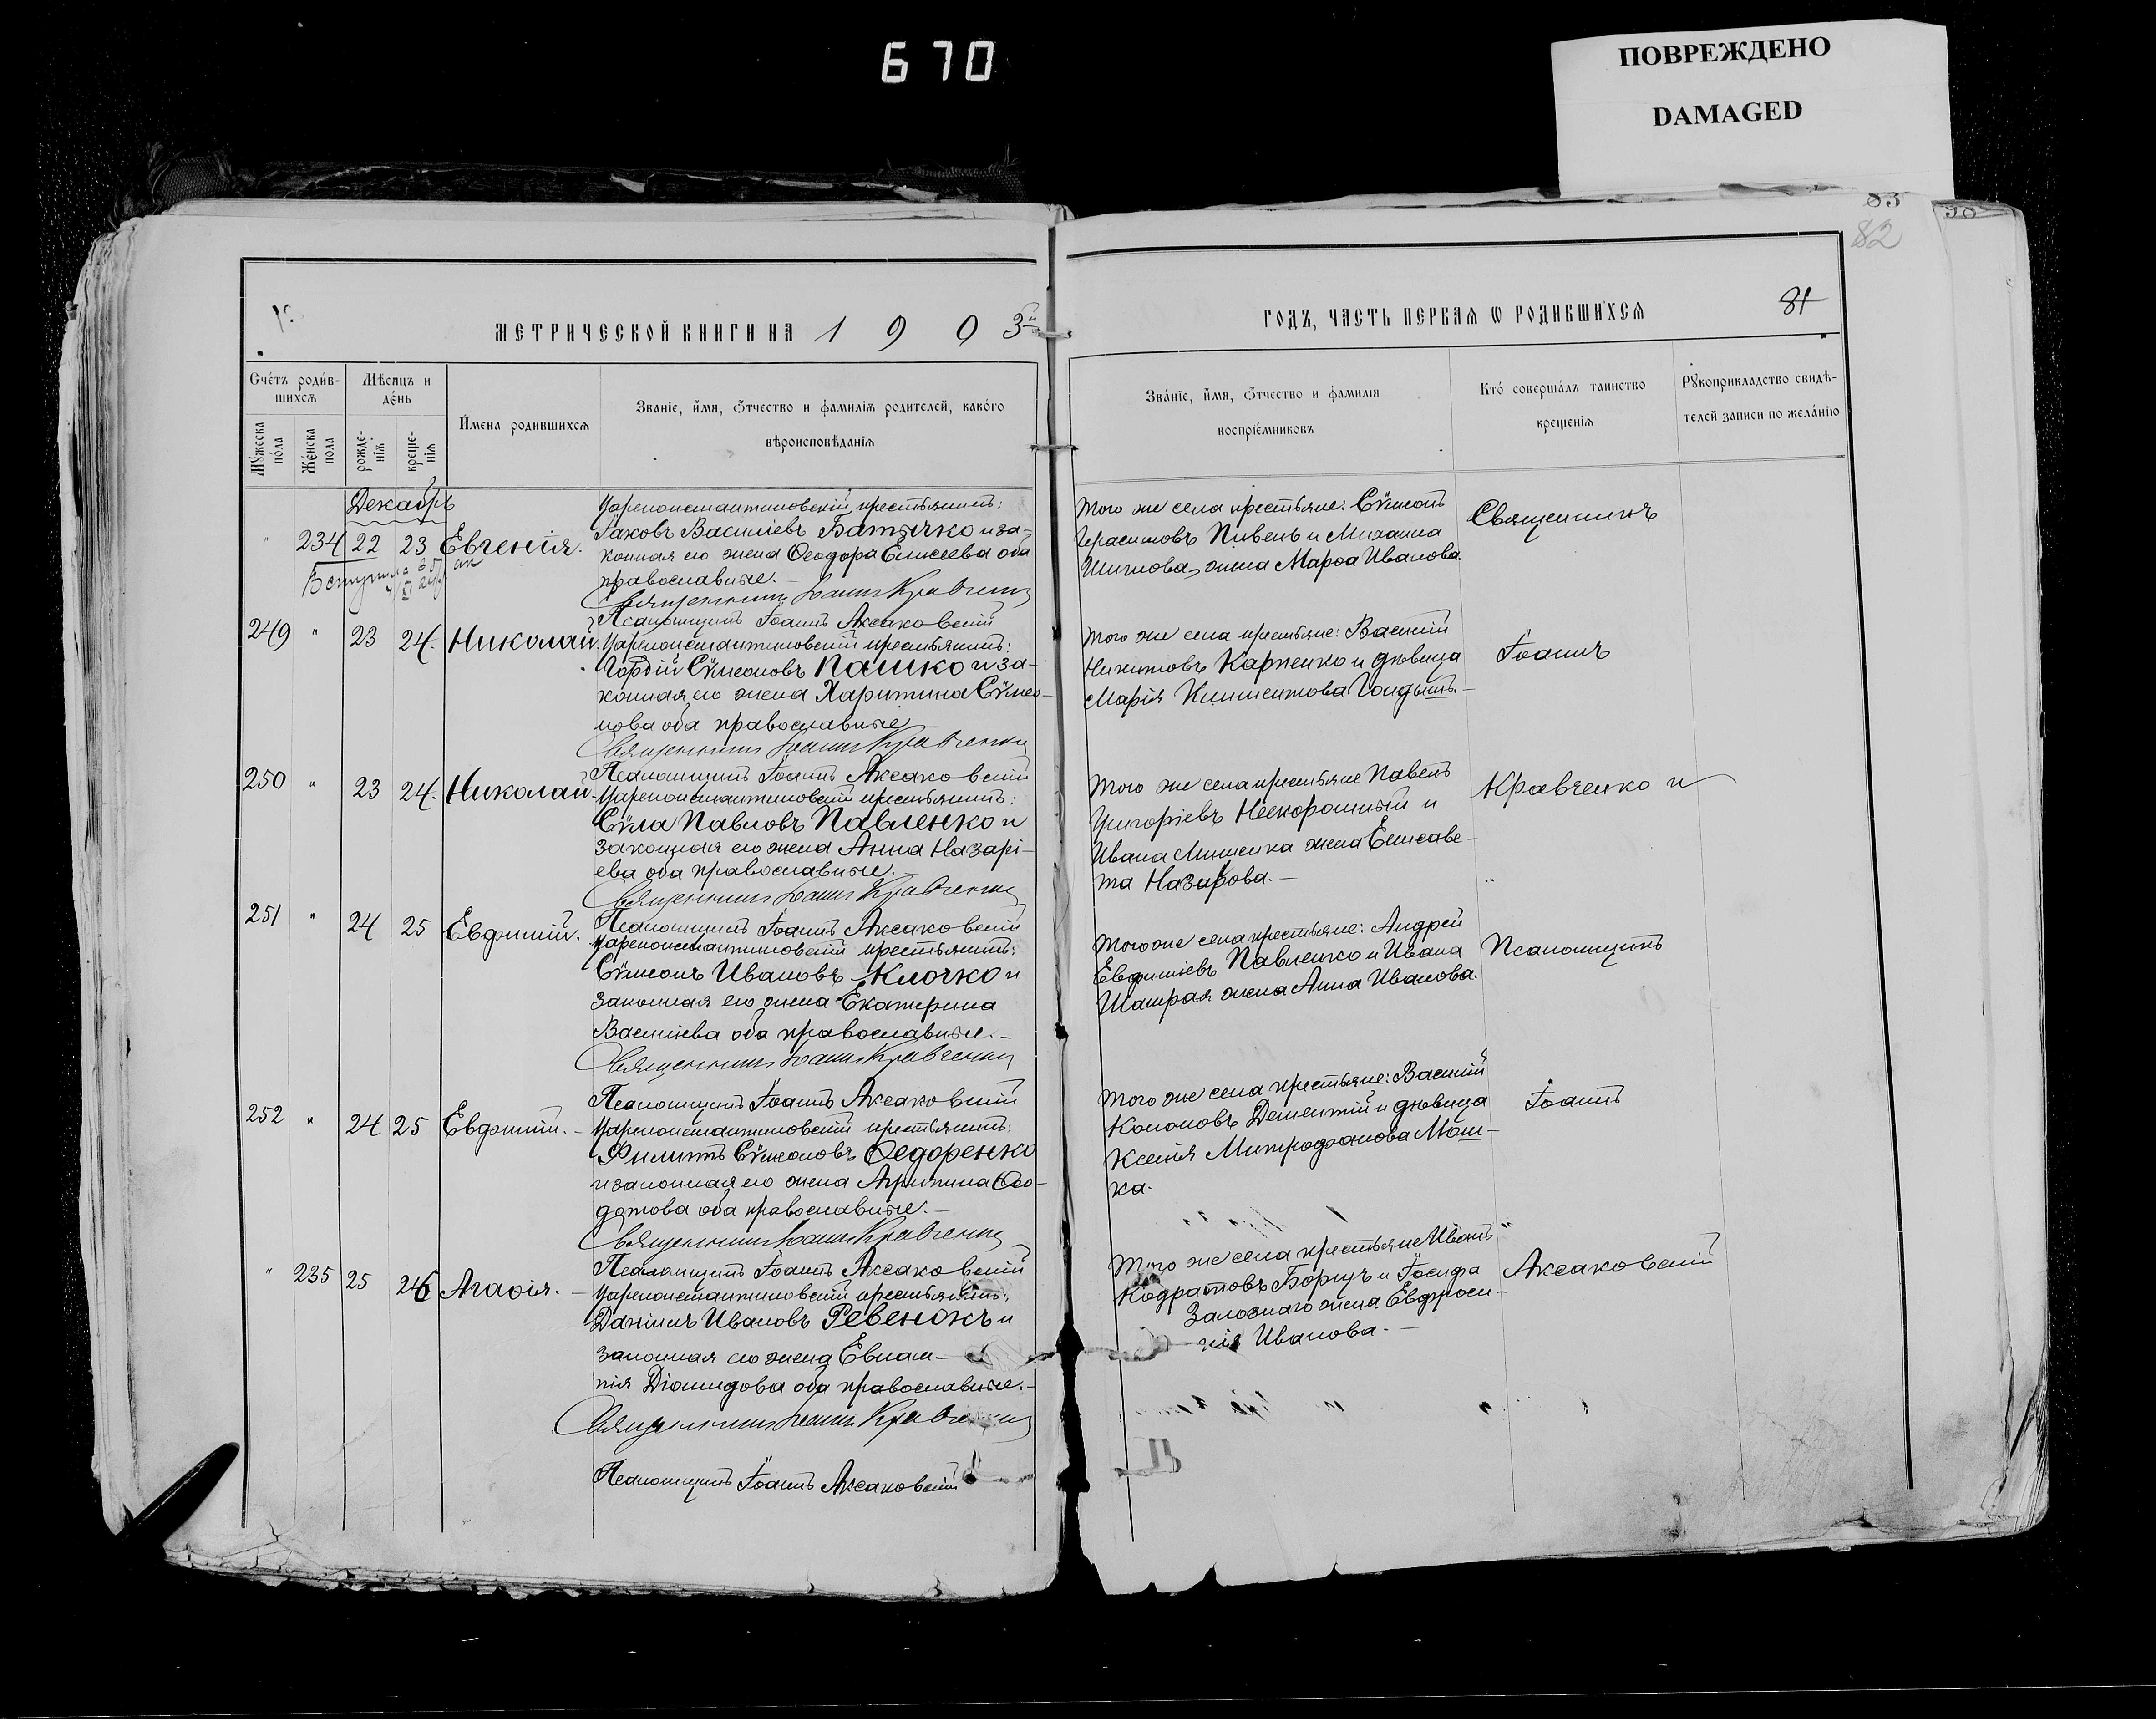 670
ПОВРЕЖДЕНО
DAMAGED
83
82
МЕТРИЧЕСКОЙ КНИГИ НА 1903й
ГОДЪ, ЧАСТЬ ПЕРВАЯ Ѡ РОДИВШИХСЯ
81
Счетъ родившихся
Мѣсяцъ и день
Имена родившихся
Званіе, имя, ѿчество и фамилія родителей, какого вѣроисповѣданія
Мужеска пола
Женска пола
рожденія
крещенія
Званіе, имя, ѿчество и фамилія воспріемниковъ
Кто совершалъ таинство крещенія
Рукоприкладство свидѣтелей записи по желанію
Декабрь
" 234 22 23 Евгенія.
Цареконстантиновскій крестьянинъ:
Іаковъ Василіевъ Батычко и за-
конная его жена Ѳеодора Елисеева оба
православные.
Священникъ Іоаннъ Кравченко
Псаломщикъ Іоаннъ Аксаковскій
Того же села крестьяне: Сѵмеонъ
Герасимовъ Пивень и Михаила
жена Марѳа Иванова.
Священникъ
249 " 23 24. Николай.
Цареконстантиновскій крестьянинъ:
Гордій Сѵмеоновъ Пашко и за-
конная его жена Харитина Сѵмео-
нова оба православные
Священникъ Іоаннъ Кравченко
Псаломщикъ Іоаннъ Аксаковскій
Того же села крестьяне: Василій
Никитовъ Карпенко и дѣвица
Марія Климентова
Іоаннъ
250 " 23 24. Николай.
Цареконстантиновскій крестьянинъ:
Сѵла Павловъ Павленко и
законная его жена Анна Назарі-
ева оба православные.
Священникъ Іоаннъ Кравченко
Псаломщикъ Іоаннъ Аксаковскій
Того же села крестьяне Павелъ
Григоріевъ Нескорошный и
Ивана Мишенка жена Елисаве-
та Назарова.
Кравченко и
251 " 24 25 Евфимій.
Цареконстантиновскій крестьянинъ:
Сѵмеонъ Ивановъ Клочко и
законная его жена Екатерина
Василіева оба православные.
Священникъ Іоаннъ Кравченко
Псаломщикъ Іоаннъ Аксаковскій
Того же села крестьяне: Андрей
Евфиміевъ Павленко и Ивана
Шапрая жена Анна Иванова.
Псаломщикъ
252 " 24 25 Евфимій.
Цареконстантиновскій крестьянинъ:
Филиппъ Сѵмеоновъ Ѳедоренко
и законная его жена Агрипина Ѳео-
дотова оба православные.
Священникъ Іоаннъ Кравченко
Псаломщикъ Іоаннъ Аксаковскій
Того же села крестьяне: Василій
Кононовъ Дементій и дѣвица
Ксенія Митрофанова Мош-
ка.
Іоаннъ
" 235 25 26 Агаѳія.
Цареконстантиновскій крестьянинъ:
Даніилъ Ивановъ Ревенокъ и
законная его жена Евлам-
пія Діомидова оба православные.
Священникъ Іоаннъ Кравченко
Псаломщикъ Іоаннъ Аксаковскій
Того же села крестьяне Иванъ
Кодратовъ Борщъ и Іосифа
Залознаго жена Евфроси-
нія Иванова.
Аксаковскій